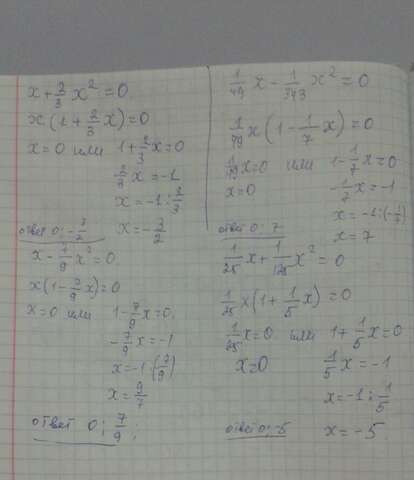 x + 2/3 x² = 0
x(1 + 2/3 x) = 0
x = 0 или 1 + 2/3 x = 0
2/3 x = -1
x = -1 : 2/3
x = -3/2
ответ 0; -3/2
x - 7/9 x² = 0
x(1 - 7/9 x) = 0
x = 0 или 1 - 7/9 x = 0
-7/9 x = -1
x = -1 : (7/9)
x = 9/7
ответ 0; 7/9;
1/49 x - 1/343 x² = 0
1/49 x (1 - 1/7 x) = 0
1/49 x = 0 или 1 - 1/7 x = 0
x = 0 -1/7 x = -1
x = -1 : (-1/7)
x = 7
ответ 0; 7
1/25 x + 1/125 x² = 0
1/25 x (1 + 1/5 x) = 0
1/25 x = 0 или 1 + 1/5 x = 0
x = 0 1/5 x = -1
x = -1 : 1/5
x = -5
ответ 0; -5